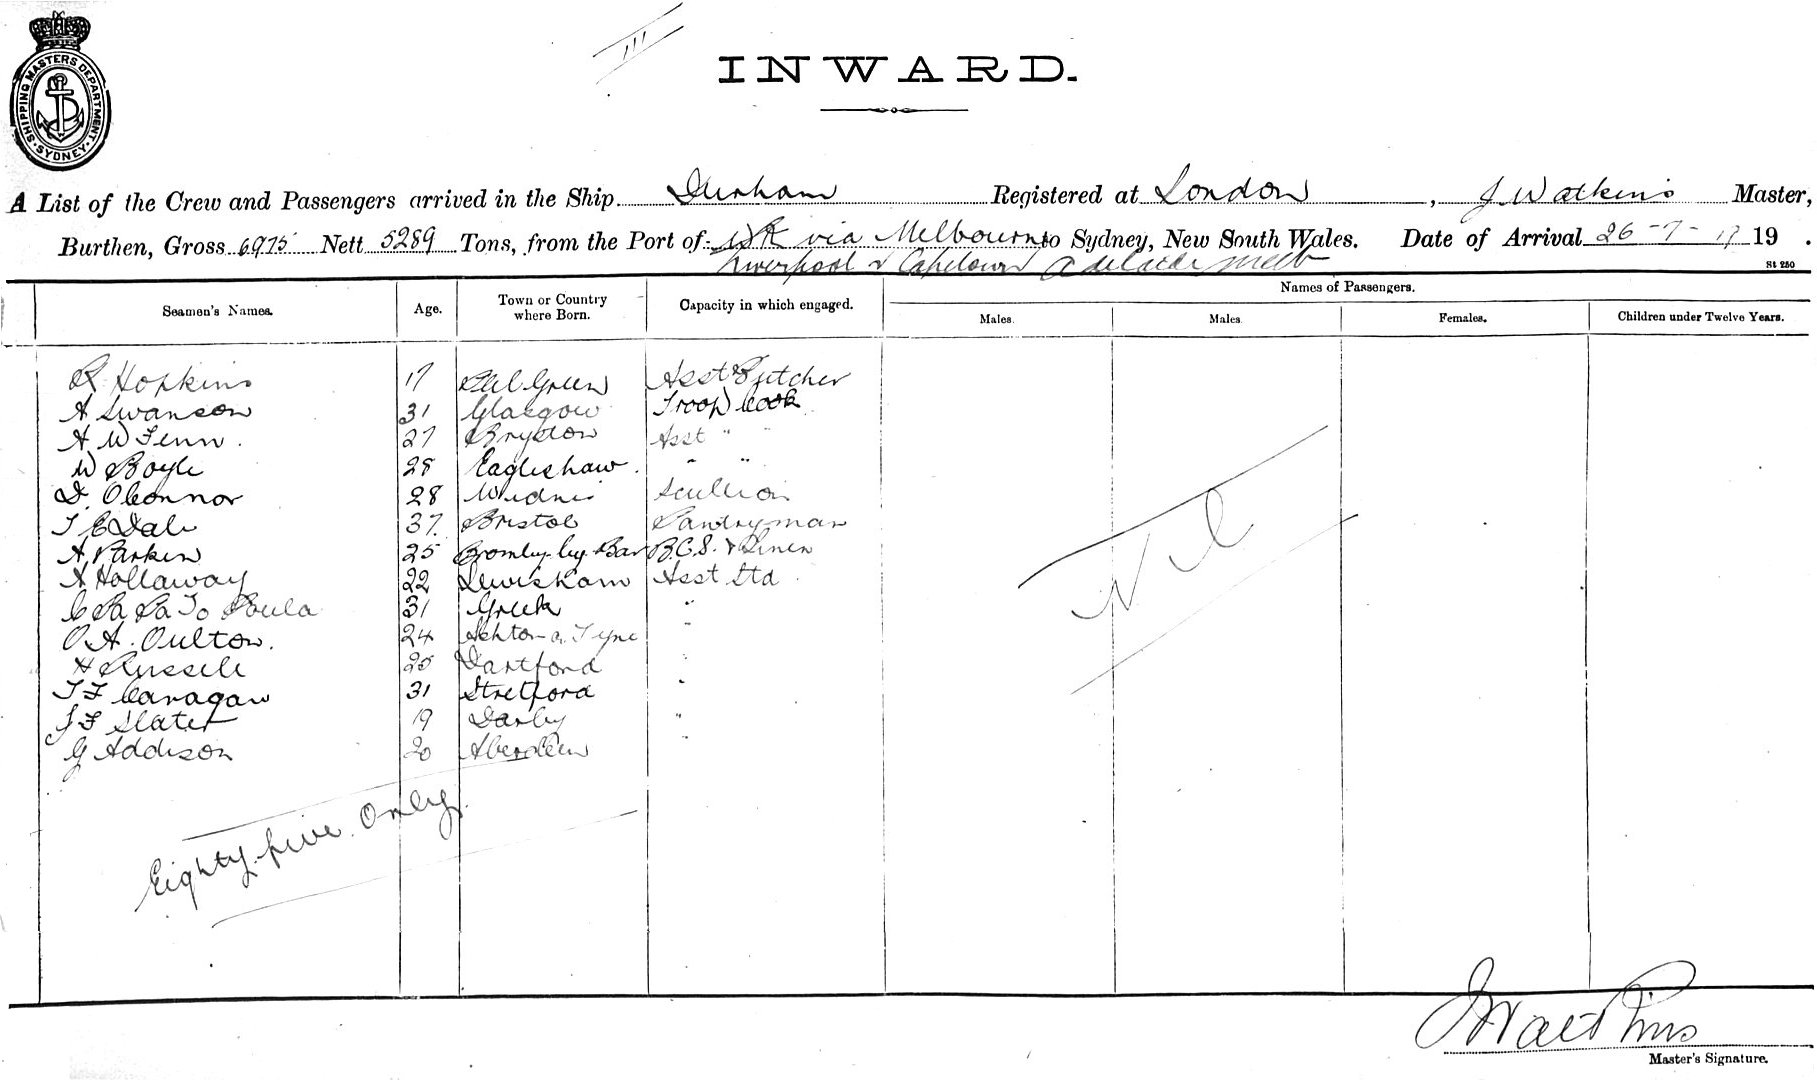 III
INWARD.
SHIPPING MASTERS DEPARTMENT. SYDNEY
A List of the Crew and Passengers arrived in the Ship Durham Registered at London, J Watkins Master,
Burthen, Gross 6975 Nett 5289 Tons, from the Port of via Melbourne to Sydney, New South Wales. Date of Arrival 26-7-17 19 .
Liverpool & Capetown Adelaide Melb
St 250
Seamen's Names. Age. Town or Country where Born. Capacity in which engaged. Names of Passengers.
Males. Males. Females. Children under Twelve Years.
R Hopkins 17 Green Asst Butcher
A Swanson 31 Glasgow Troop Cook
A W Fenn. 27 Asst " "
W Boyle 28 Eagleshaw. " "
D. OConnor 28 Widnes Scullion
T E Dale 37 Bristol Pantryman
A Parkin 25 Bromley by Bow B.C.S. & Linen
A Hollaway 22 Lewisham Asst Std
C Pa Pa To Poula 31 Greek "
O A. Oulton. 24 Ashton a Tyne "
H Russell 25 Dartford "
T F Canagan 31 Stretford "
J F Slater 19 Darby "
G Addison 20 Aberdeen "
Nil
Eighty five Only.
J Watkins
Master's Signature.